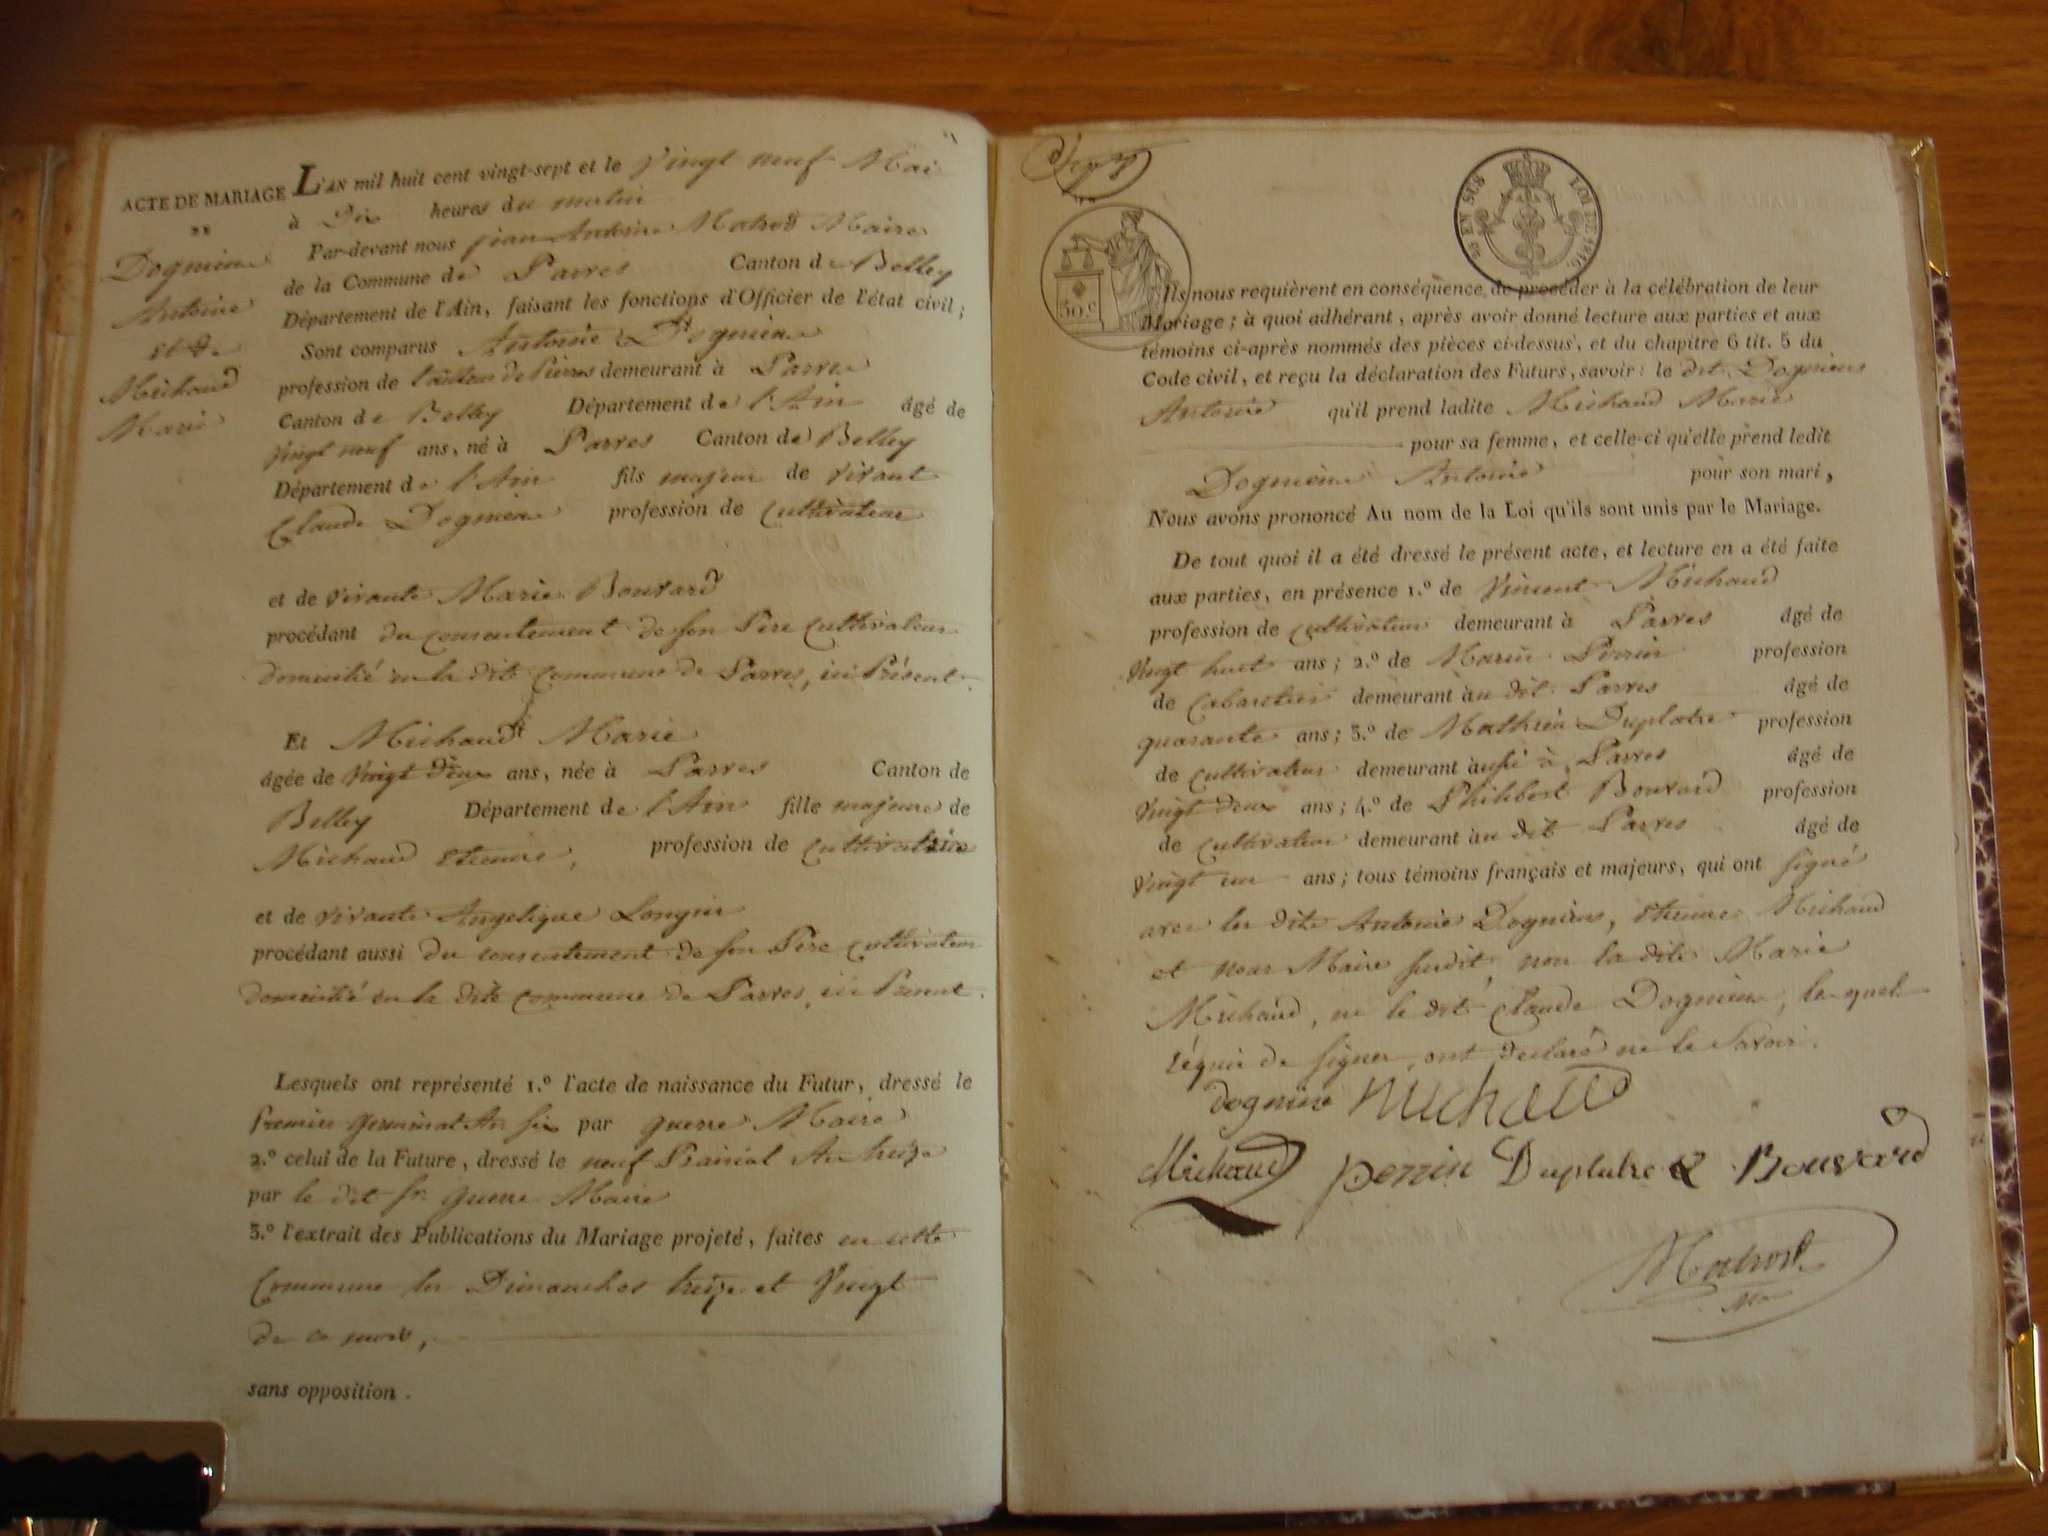 ACTE DE MARIAGE
DE
Dogmien
Antoine
et de
Michaud
Marie
L'AN mil huit cent vingt-sept et le Vingt neuf Mai
à Dix heures du matin
Par-devant nous jean Antoine Matrod Maire
de la Commune de Parves Canton de Belley
Département de l'Ain, faisant les fonctions d'Officier de l'état civil;
Sont comparus Antoine Dognien
profession de demeurant à Parves
Canton de Belley Département de l'Ain âgé de
Vingt neuf ans, né à Parves Canton de Belley
Département de l'Ain fils majeur de vivant
Claude Dognien profession de Cultivateur
et de vivante Marie Bouvard
procédant du consentement de son Père Cultivateur
domicilié en la dite Commune de Parves, ici Présent
Et Michaud Marie
âgée de Vingt deux ans, née à Parves Canton de
Belley Département de l'Ain fille majeure de
Michaud Etienne, profession de Cultivateur
et de vivante Angelique Longin
procédant aussi du consentement de son Père Cultivateur
domicilié en la dite commune de Parves, ici Present.
Lesquels ont représenté 1.º l'acte de naissance du Futur, dressé le
Premier Germinal An six par Guerre Maire
2.º celui de la Future, dressé le neuf Prairial An treize
par le dit Sr. Guerre Maire
3.º l'extrait des Publications du Mariage projeté, faites en cette
Commune les Dimanches treize et Vingt
de ce mois,
sans opposition.
25 EN SUS LOI DE 1816.
30 c
Ils nous requièrent en conséquence de procéder à la célébration de leur
Mariage; à quoi adhérant, après avoir donné lecture aux parties et aux
témoins ci-après nommés des pièces ci-dessus, et du chapitre 6 tit. 5 du
Code civil, et reçu la déclaration des Futurs, savoir: le dit Dognien
Antoine qu'il prend ladite Michaud Marie
pour sa femme, et celle-ci qu'elle prend ledit
Dognien Antoine pour son mari,
Nous avons prononcé Au nom de la Loi qu'ils sont unis par le Mariage.
De tout quoi il a été dressé le présent acte, et lecture en a été faite
aux parties, en présence 1.º de Vincent Michaud
profession de cultivateur demeurant à Parves âgé de
Vingt huit ans; 2.º de Marin Perrin profession
de Cabaretier demeurant à au dit Parves âgé de
quarante ans; 3.º de Mathieu Duplatre profession
de cultivateur demeurant à aussi à Parves âgé de
Vingt deux ans; 4.º de Philibert Bouvard profession
de cultivateur demeurant à au dit Parves âgé de
Vingt un ans; tous témoins français et majeurs, qui ont signé
avec les dits Antoine Dognien, Etienne Michaud
et nous Maire susdit, non la dite Marie
Michaud, ni le dit Claude Dognien, lesquels
requis de signer, ont declaré ne le Savoir.
Dognien Michaud
Michaud perrin Duplatre Bouvard
Matrod
Mre